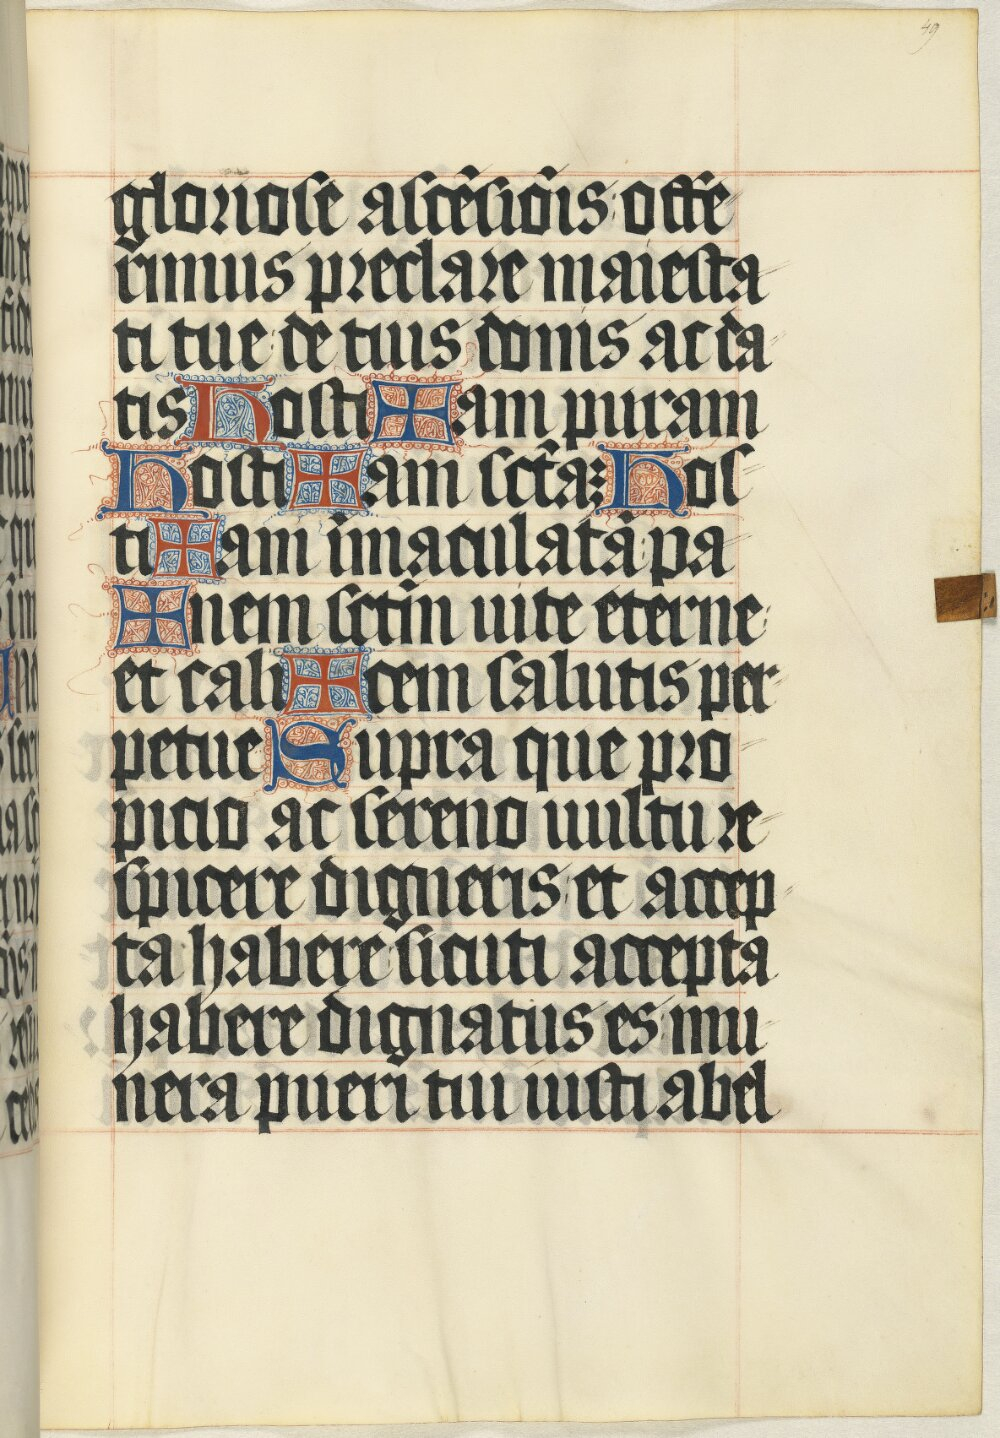 49
gloriose asce̅sio̅is offe
rimus preclare maiesta
ti tue de tuis donis ac da
tis Hosti ✠ am puram
Hosti ✠ am sct̅aꝫ Hos
ti ✠ am i̅maculata̅ pa
✠ nem sct̅m uite eterne
et cali ✠ cem salutis per
petue Supra que pro
picio ac sereno uultu re
spicere digneris et accep
ta habere sicuti accepta
habere dignatus es mu
nera pueri tui iusti abel